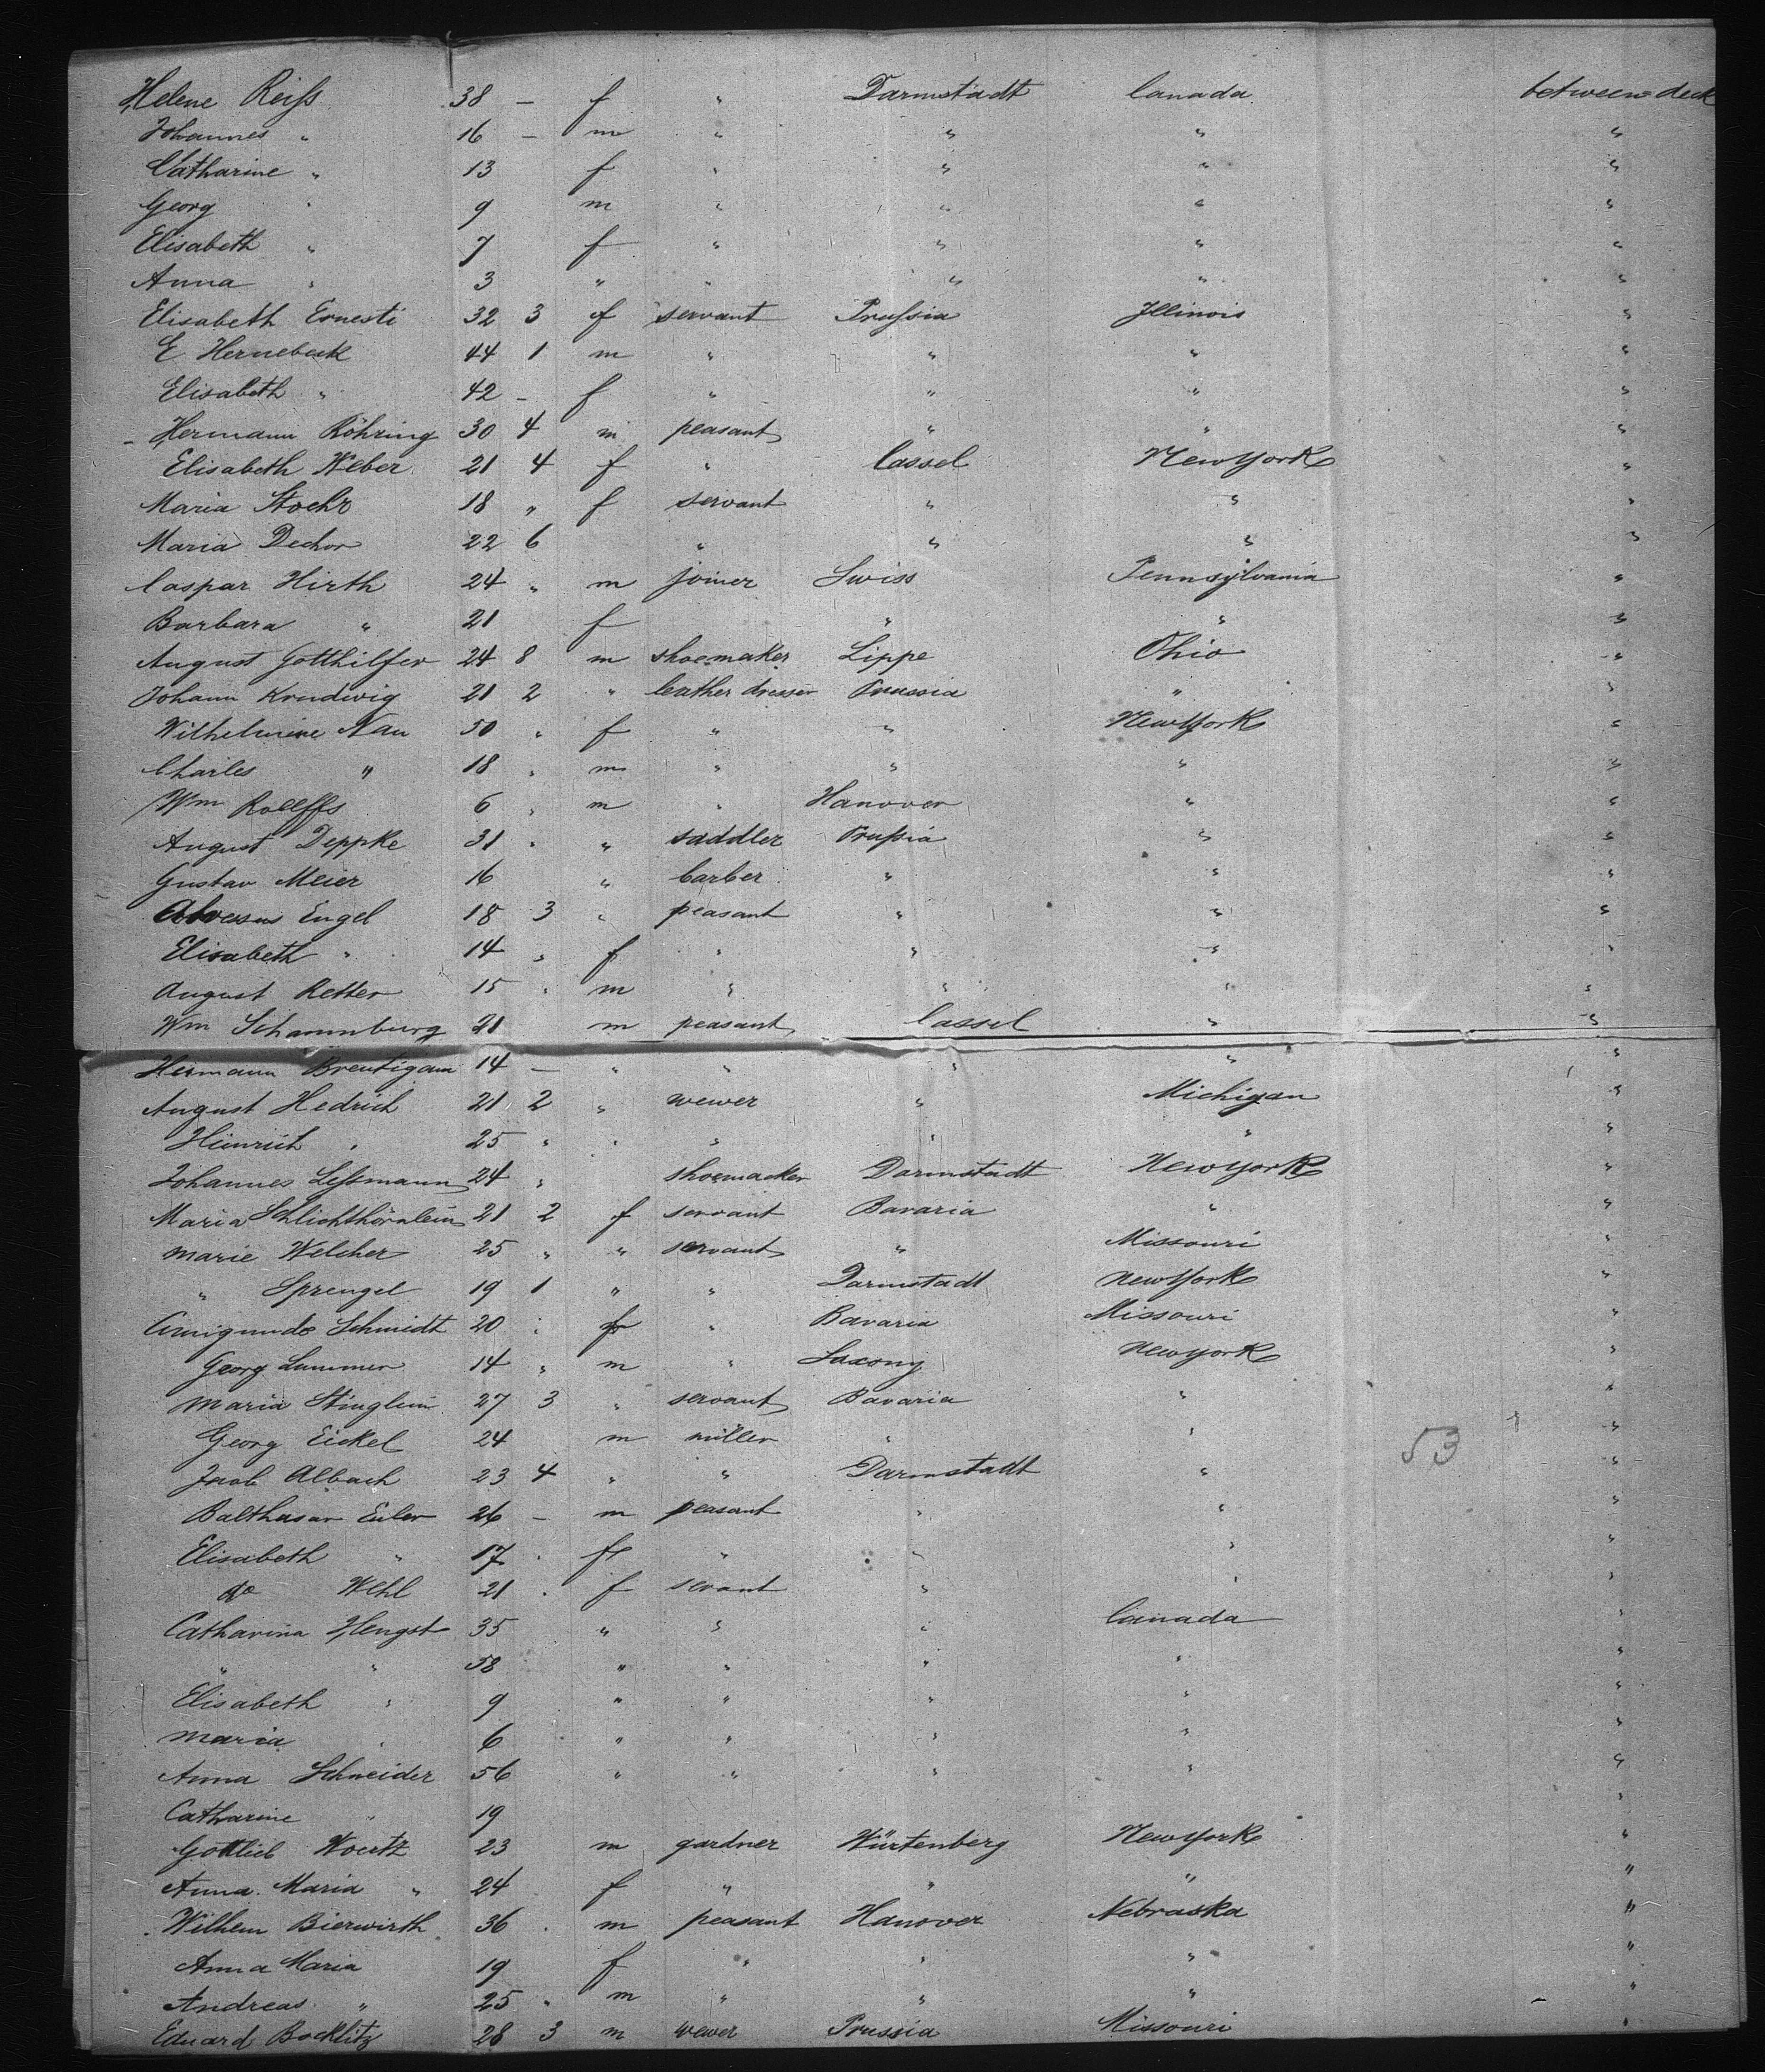 Helene Reiſs 38 – f " Darmstadt Canada between deck
Johannes " 16 – m " " " "
Catharine " 13 f " " " "
Georg " 9 m " " " "
Elisabeth " 7 f " " " "
Anna " 3 " " " " "
Elisabeth Ernesti 32 3 f servant Pruſsia Illinois "
E Hernebeck 44 1 m " " " "
Elisabeth " 42 – f " " " "
– Hermann Röhring 30 4 m peasant " " "
Elisabeth Weber 21 4 f " Cassel New York "
Maria Stoehr 18 " f servant " " "
Maria Dechor 22 6 " " " "
Caspar Hirth 24 " m joiner Swiss Pennsylvania "
Barbara " 21 f " " "
August Gotthilfer 24 8 m shoemaker Lippe Ohio "
Johann Krudwig 21 2 " leather dresser Prussia " "
Wilhelmine Nau 50 " f " " New York "
Charles " 18 " m " " " "
Wm Roelffs 6 " m " Hanover " "
August Deppke 31 " " saddler Pruſsia " "
Gustav Meier 16 " barber " " "
Engel 18 3 " peasant " " "
Elisabeth " 14 " f " " " "
August Retter 15 " m " " " "
Wm Schaumburg 21 m peasant Cassel " "
Hermann Breutigam 14 – " " " " "
August Hedrich 21 2 " wewer " Michigan "
Heinrich " 25 " " " " " "
Johannes Leſsmann 24 " shoemacker Darmstadt New York "
Maria Schlichthörnlein 21 2 f servant Bavaria " "
Marie Welcher 25 " " servant " Missouri "
" Sprengel 19 1 " " Darmstadt New York "
Cunigunde Schmidt 20 " f " Bavaria Missouri "
Georg Lummer 14 " m " Saxony New York "
Maria Stinglein 27 3 " servant Bavaria " "
Georg Eickel 24 m miller " " 53 "
Jacob Albach 23 4 " " Darmstadt " "
Balthasar Euler 26 – m peasant " " "
Elisabeth " 17 " f " " " "
do Wehl 21 " f servant " " "
Catharina Hengst 35 " " " Canada "
" " 58 " " " " "
Elisabeth " 9 " " " " "
Maria " 6 " " " " "
Anna Schneider 56 " " " " "
Catharine " 19 "
Gottlieb Woertz 23 m gardner Würtenberg New York "
Anna Maria " 24 f " " " "
Wilhem Bierwirth 36 " m peasant Hanover Nebraska "
Anna Maria 19 f " " " "
Andreas " 25 " m " " " "
Eduard Bocklitz 28 3 m wewer Prussia Missouri "